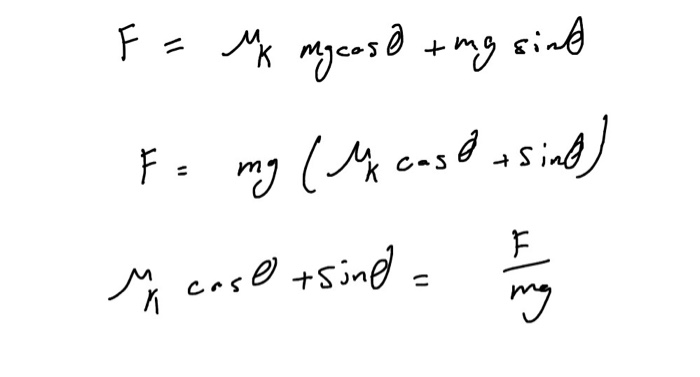 F = μ_K mg cos θ + mg sin θ
F = mg (μ_K cos θ + sin θ)
μ_K cos θ + sin θ = F/mg